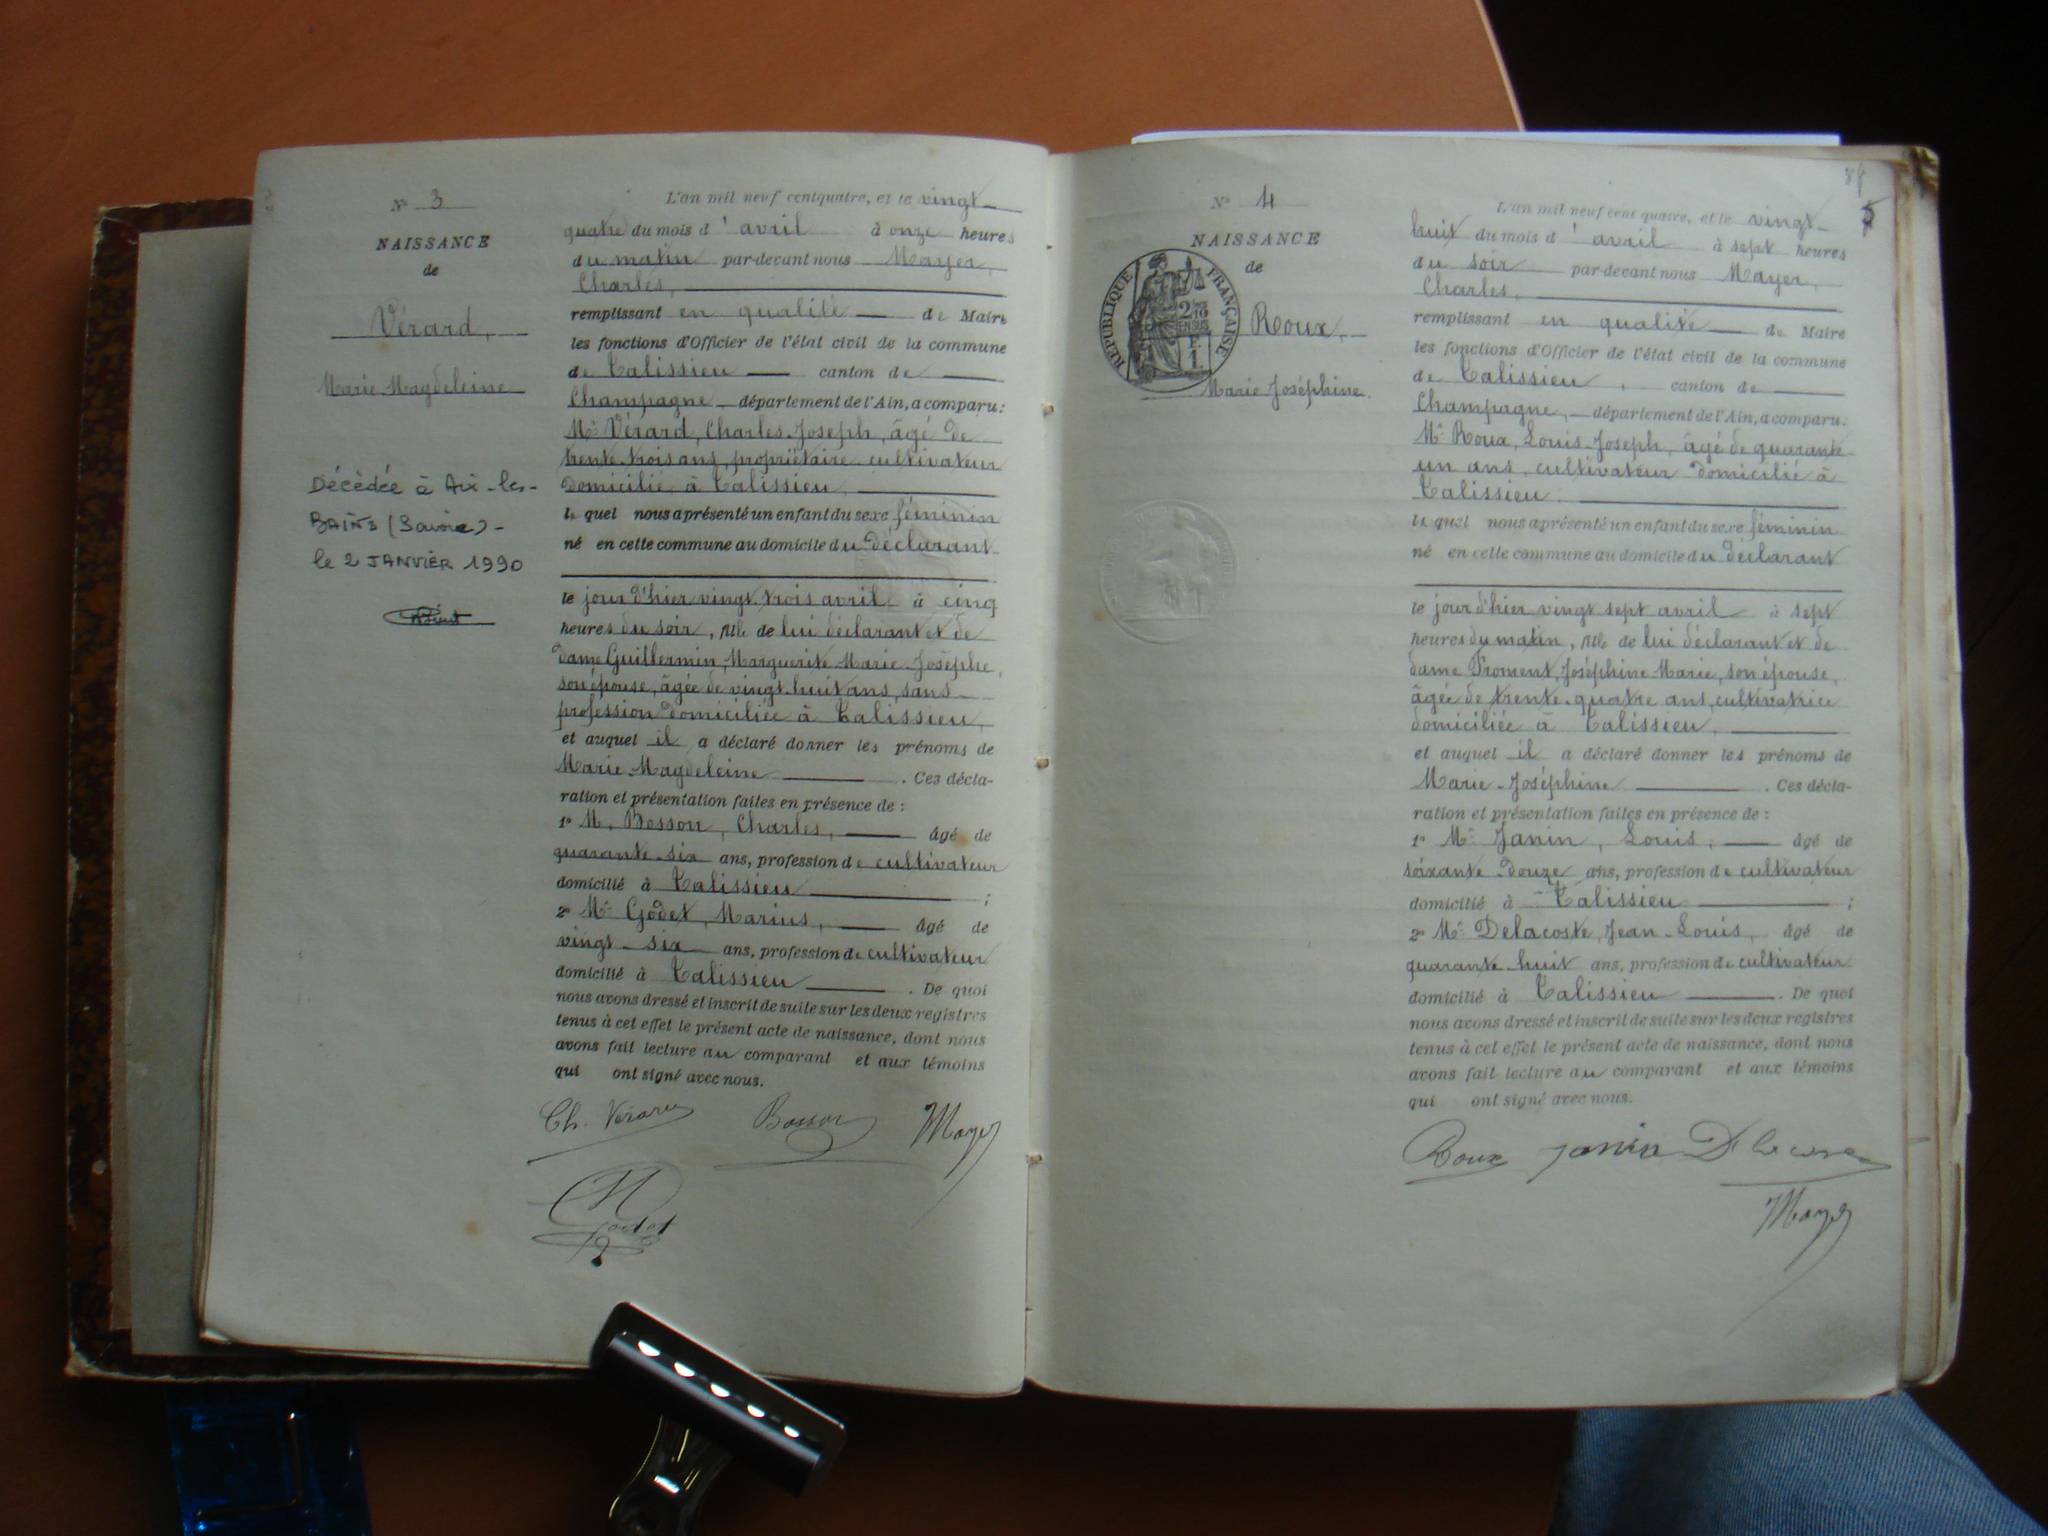 Nº 3
NAISSANCE
de
Vérard,
Marie-Magdeleine
Décédée à Aix-les-
BAINS (Savoie)-
le 2 JANVIER 1990
L'an mil neuf cent quatre, et le vingt-
quatre du mois d'avril à onze heures
du matin par-devant nous Mayer,
Charles,
remplissant en qualité de Maire
les fonctions d'Officier de l'état civil de la commune
de Talissieu canton de
Champagne département de l'Ain, a comparu:
Mr Vérard, Charles-Joseph, âgé de
trente-trois ans, propriétaire-cultivateur
domicilié à Talissieu,
lequel nous a présenté un enfant du sexe féminin
né en cette commune au domicile du déclarant
le jour d'hier vingt-trois avril à cinq
heures du soir, fille de lui déclarant et de
dame Guillermin, Marguerite-Marie-Josèphe,
son épouse, âgée de vingt-huit ans, sans
profession domiciliée à Talissieu,
et auquel il a déclaré donner les prénoms de
Marie-Magdeleine. Ces décla-
ration et présentation faites en présence de :
1º M. Bosson, Charles, âgé de
quarante-six ans, profession de cultivateur
domicilié à Talissieu ;
2º Mr Godet, Marius, âgé de
vingt-six ans, profession de cultivateur
domicilié à Talissieu. De quoi
nous avons dressé et inscrit de suite sur les deux registres
tenus à cet effet le présent acte de naissance, dont nous
avons fait lecture au comparant et aux témoins
qui ont signé avec nous.
Ch. Vérard Bosson Mayer
M Godet
84
5
Nº 4
NAISSANCE
de
Roux,
Marie-Joséphine.
RÉPUBLIQUE FRANÇAISE
2/10
EN SUS
1F.
L'an mil neuf cent quatre, et le vingt-
huit du mois d'avril à sept heures
du soir par-devant nous Mayer,
Charles,
remplissant en qualité de Maire
les fonctions d'Officier de l'état civil de la commune
de Talissieu, canton de
Champagne, département de l'Ain, a comparu:
Mr Roux, Louis-Joseph, âgé de quarante-
un ans, cultivateur domicilié à
Talissieu.
lequel nous a présenté un enfant du sexe féminin
né en cette commune au domicile du déclarant
le jour d'hier vingt-sept avril à sept
heures du matin, fille de lui déclarant et de
dame Froment, Joséphine-Marie, son épouse,
âgée de trente-quatre ans, cultivatrice
domiciliée à Talissieu,
et auquel il a déclaré donner les prénoms de
Marie-Joséphine. Ces décla-
ration et présentation faites en présence de :
1º Mr Janin, Louis, âgé de
soixante-douze ans, profession de cultivateur
domicilié à Talissieu ;
2º Mr Delacoste, Jean-Louis, âgé de
quarante-huit ans, profession de cultivateur
domicilié à Talissieu. De quoi
nous avons dressé et inscrit de suite sur les deux registres
tenus à cet effet le présent acte de naissance, dont nous
avons fait lecture au comparant et aux témoins
qui ont signé avec nous.
Roux Janin
Mayer